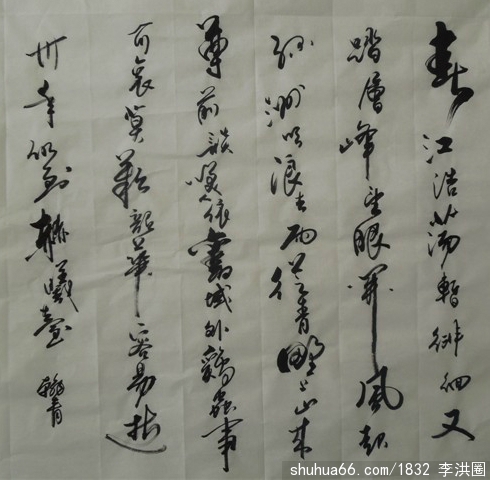 春江浩荡暂徘徊又
踏层峰望眼开风起
绿洲吹浪去雨从青野上山来
尊前谈笑人依旧域外鸡虫事
可哀莫叹韶华容易逝
卅年仍到赫曦台
shuhua66.com/1832 李洪圈